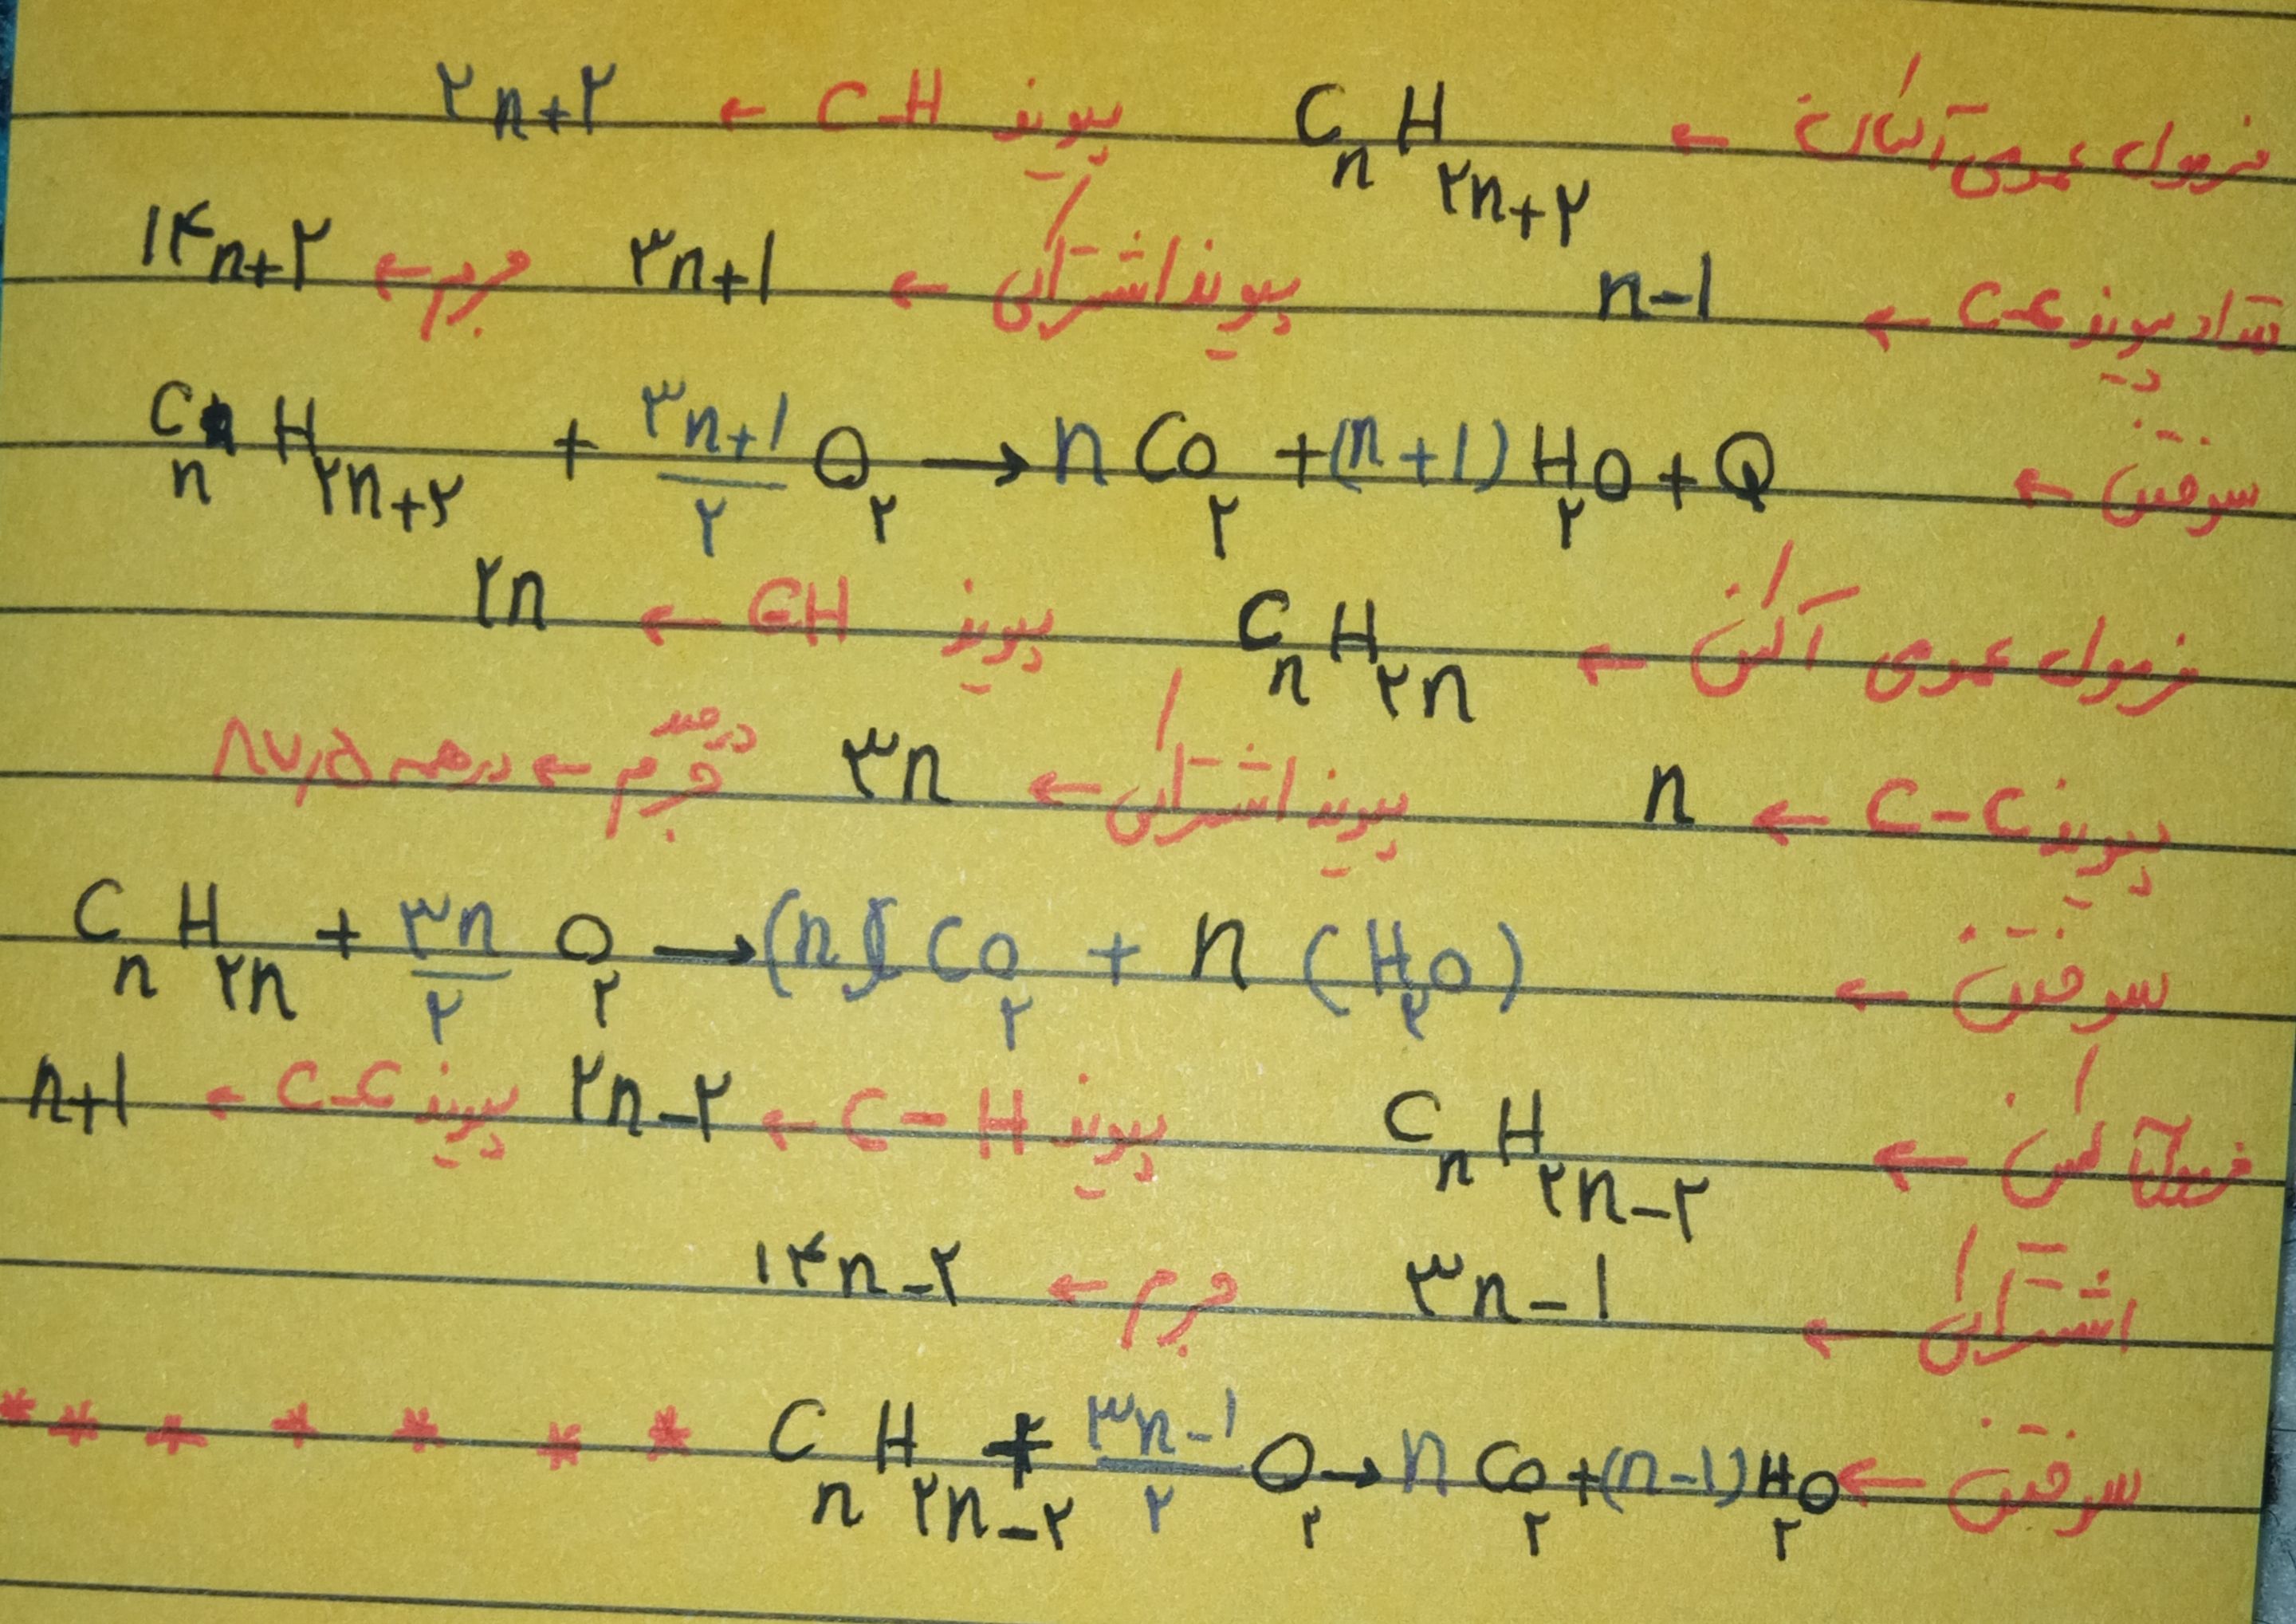 فرمول عمومی آلکان ← CₙH₂ₙ₊₂ پیوند C-H ← ۲n+۲
تعداد پیوند C-C ← n-۱ پیوند اشتراکی ← ۳n+۱ جرم ← ۱۴n+۲
سوختن ← CnH۲n+۲ + ۳n+۱/۲ O۲ → n Co۲ + (n+۱) H۲O + Q
فرمول عمومی آلکن ← CnH۲n پیوند C-H ← ۲n
پیوند C-C ← n پیوند اشتراکی ← ۳n درصد جرم ← در همه ۸۷٫۵
سوختن ← CnH۲n + ۳n/۲ O۲ → (n) Co۲ + n (H۲O)
فرمول آلکین ← CnH۲n-۲ پیوند C-H ← ۲n-۲ پیوند C-C ← n+۱
اشتراکی ← ۳n-۱ جرم ← ۱۴n-۲
سوختن ← CnH۲n-۲ + ۳n-۱/۲ O۲ → n Co۲ + (n-۱) H۲O * * * * * * *